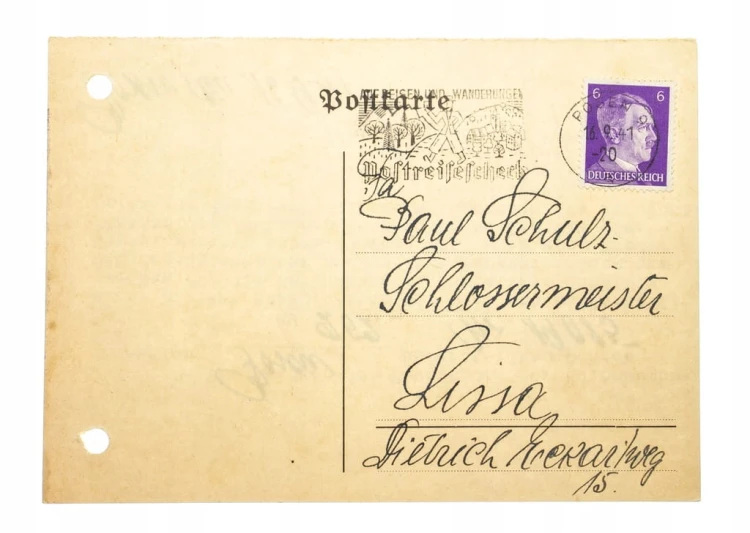 Postkarte
AUF REISEN UND WANDERUNGEN
Postreisescheck
6 6
POSEN 2
16.9.41
-20
DEUTSCHES REICH
Fa
Paul Schulz
Schlossermeister
Lissa
Dietrich Eckartweg
15.